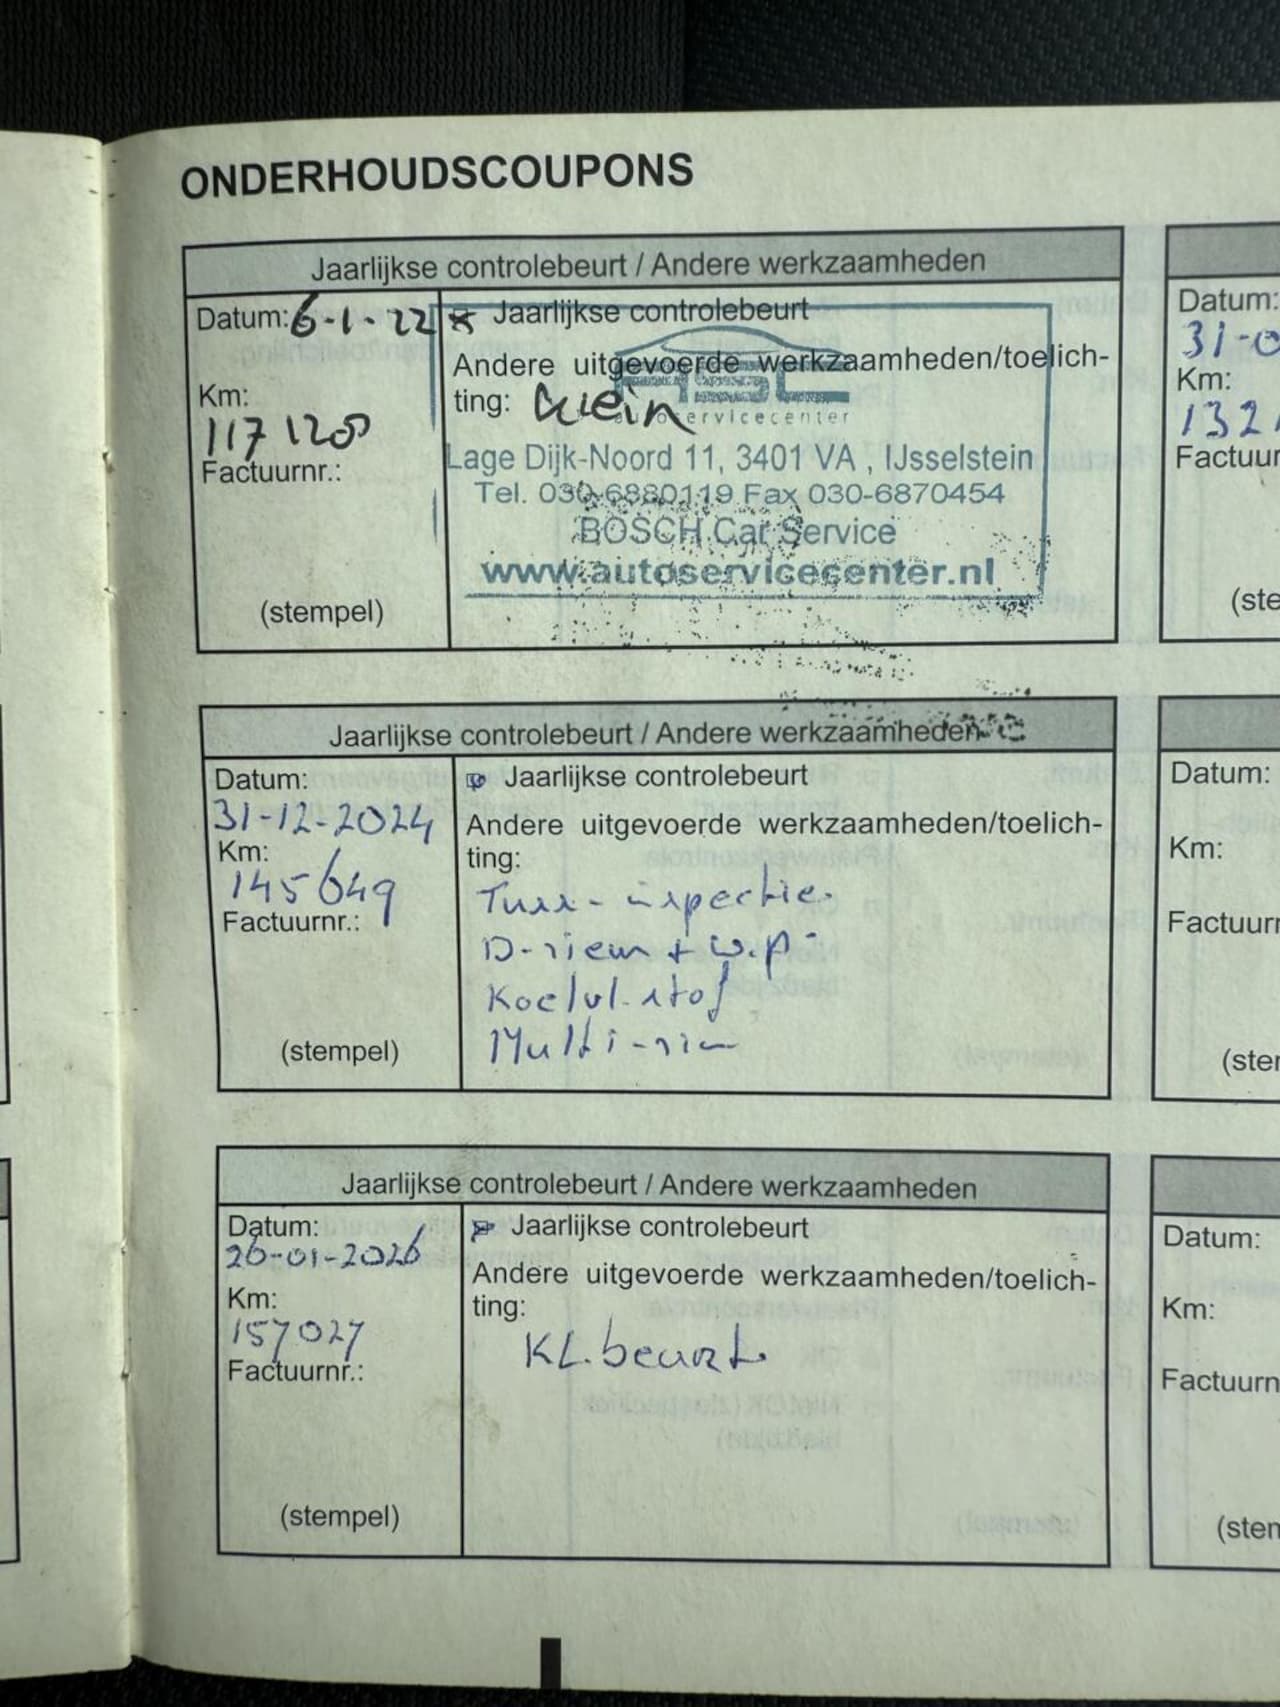 ONDERHOUDSCOUPONS
Jaarlijkse controlebeurt / Andere werkzaamheden
Datum: 6-1-22
Jaarlijkse controlebeurt
Andere uitgevoerde werkzaamheden/toelich-
ting: klein
Km:
117120
Factuurnr.:
(stempel)
ASC
autoservicecenter
Lage Dijk-Noord 11, 3401 VA , IJsselstein
Tel. 030-6880119 Fax 030-6870454
BOSCH Car Service
www.autoservicecenter.nl
Datum:
31-0
Km:
132
Factuur
(ste
Jaarlijkse controlebeurt / Andere werkzaamheden
Datum:
31-12-2024
Km:
145649
Factuurnr.:
(stempel)
Jaarlijkse controlebeurt
Andere uitgevoerde werkzaamheden/toelich-
ting:
-inspectie
D-riem + w.p.
Koelvl.stof
Multi-riem
Datum:
Km:
Factuurn
(ster
Jaarlijkse controlebeurt / Andere werkzaamheden
Datum:
26-01-2026
Km:
157027
Factuurnr.:
(stempel)
Jaarlijkse controlebeurt
Andere uitgevoerde werkzaamheden/toelich-
ting:
KL.beurt
Datum:
Km:
Factuurn
(sten